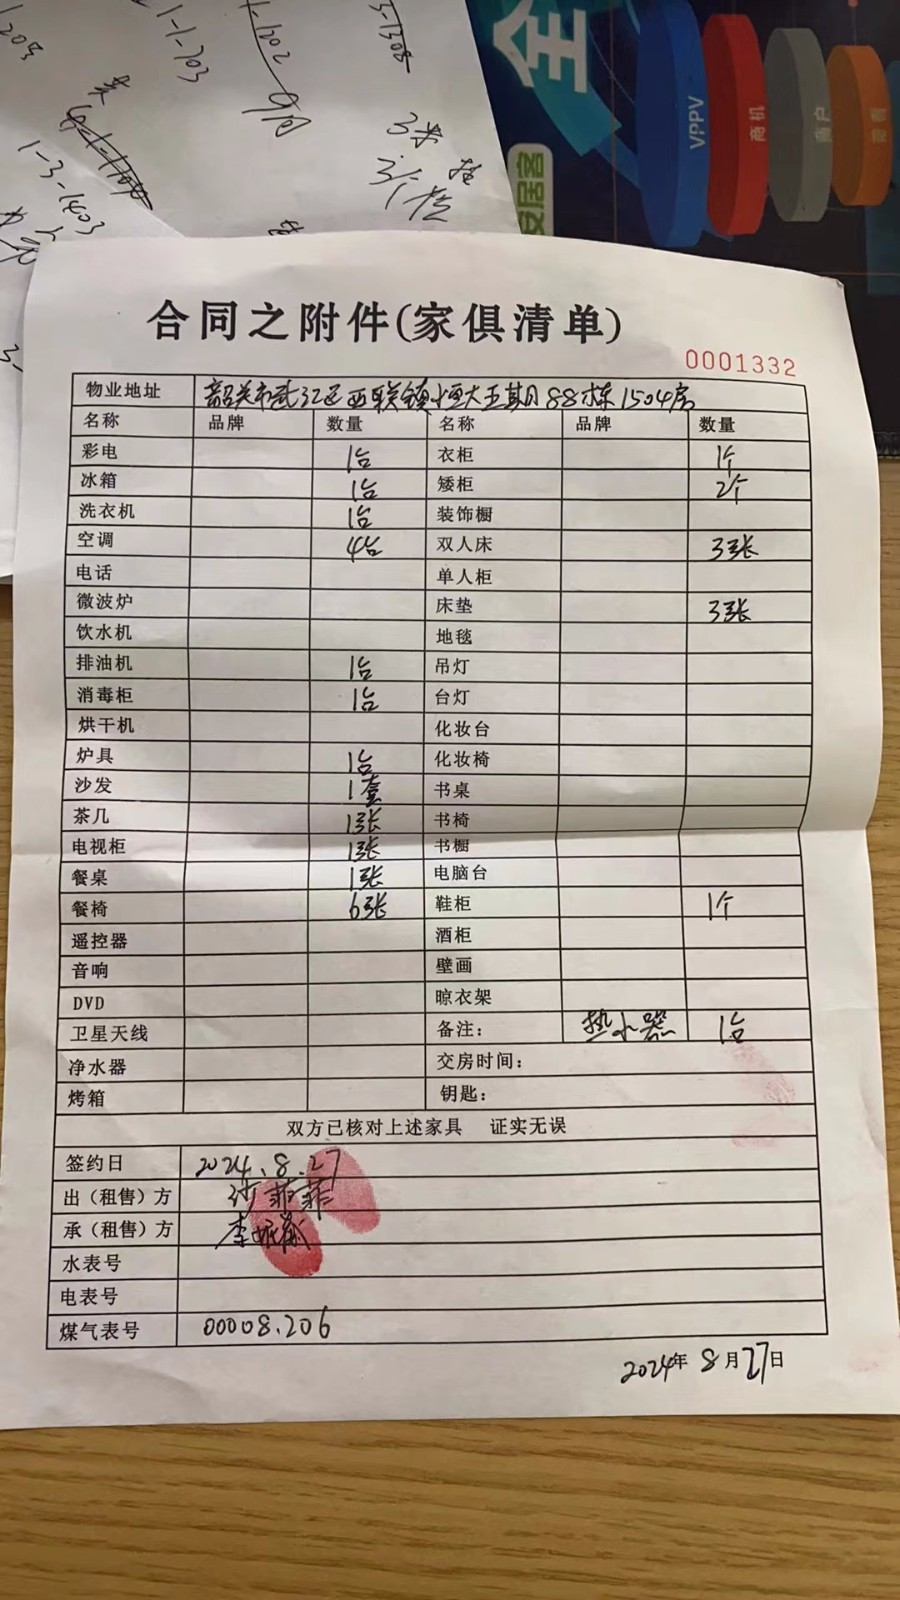 1-1-703
1-1202
3-1308
9月
1-3-1403
3米
3个
全
VPPV
商机
商户
安居客
合同之附件(家俱清单)
0001332
物业地址 韶关市武江区西联镇恒大五期88栋1504房
名称 品牌 数量 名称 品牌 数量
彩电 1台 衣柜 1个
冰箱 1台 矮柜 2个
洗衣机 1台 装饰橱
空调 4台 双人床 3张
电话 单人柜
微波炉 床垫 3张
饮水机 地毯
排油机 1台 吊灯
消毒柜 1台 台灯
烘干机 化妆台
炉具 1台 化妆椅
沙发 1套 书桌
茶几 1张 书椅
电视柜 1张 书橱
餐桌 1张 电脑台
餐椅 6张 鞋柜 1个
遥控器 酒柜
音响 壁画
DVD 晾衣架
卫星天线 备注: 热水器 1台
净水器 交房时间:
烤箱 钥匙:
双方已核对上述家具 证实无误
签约日 2024.8.27
出（租售）方 菲菲
承（租售）方 李
水表号
电表号
煤气表号 00008.206
2024年 8月27日